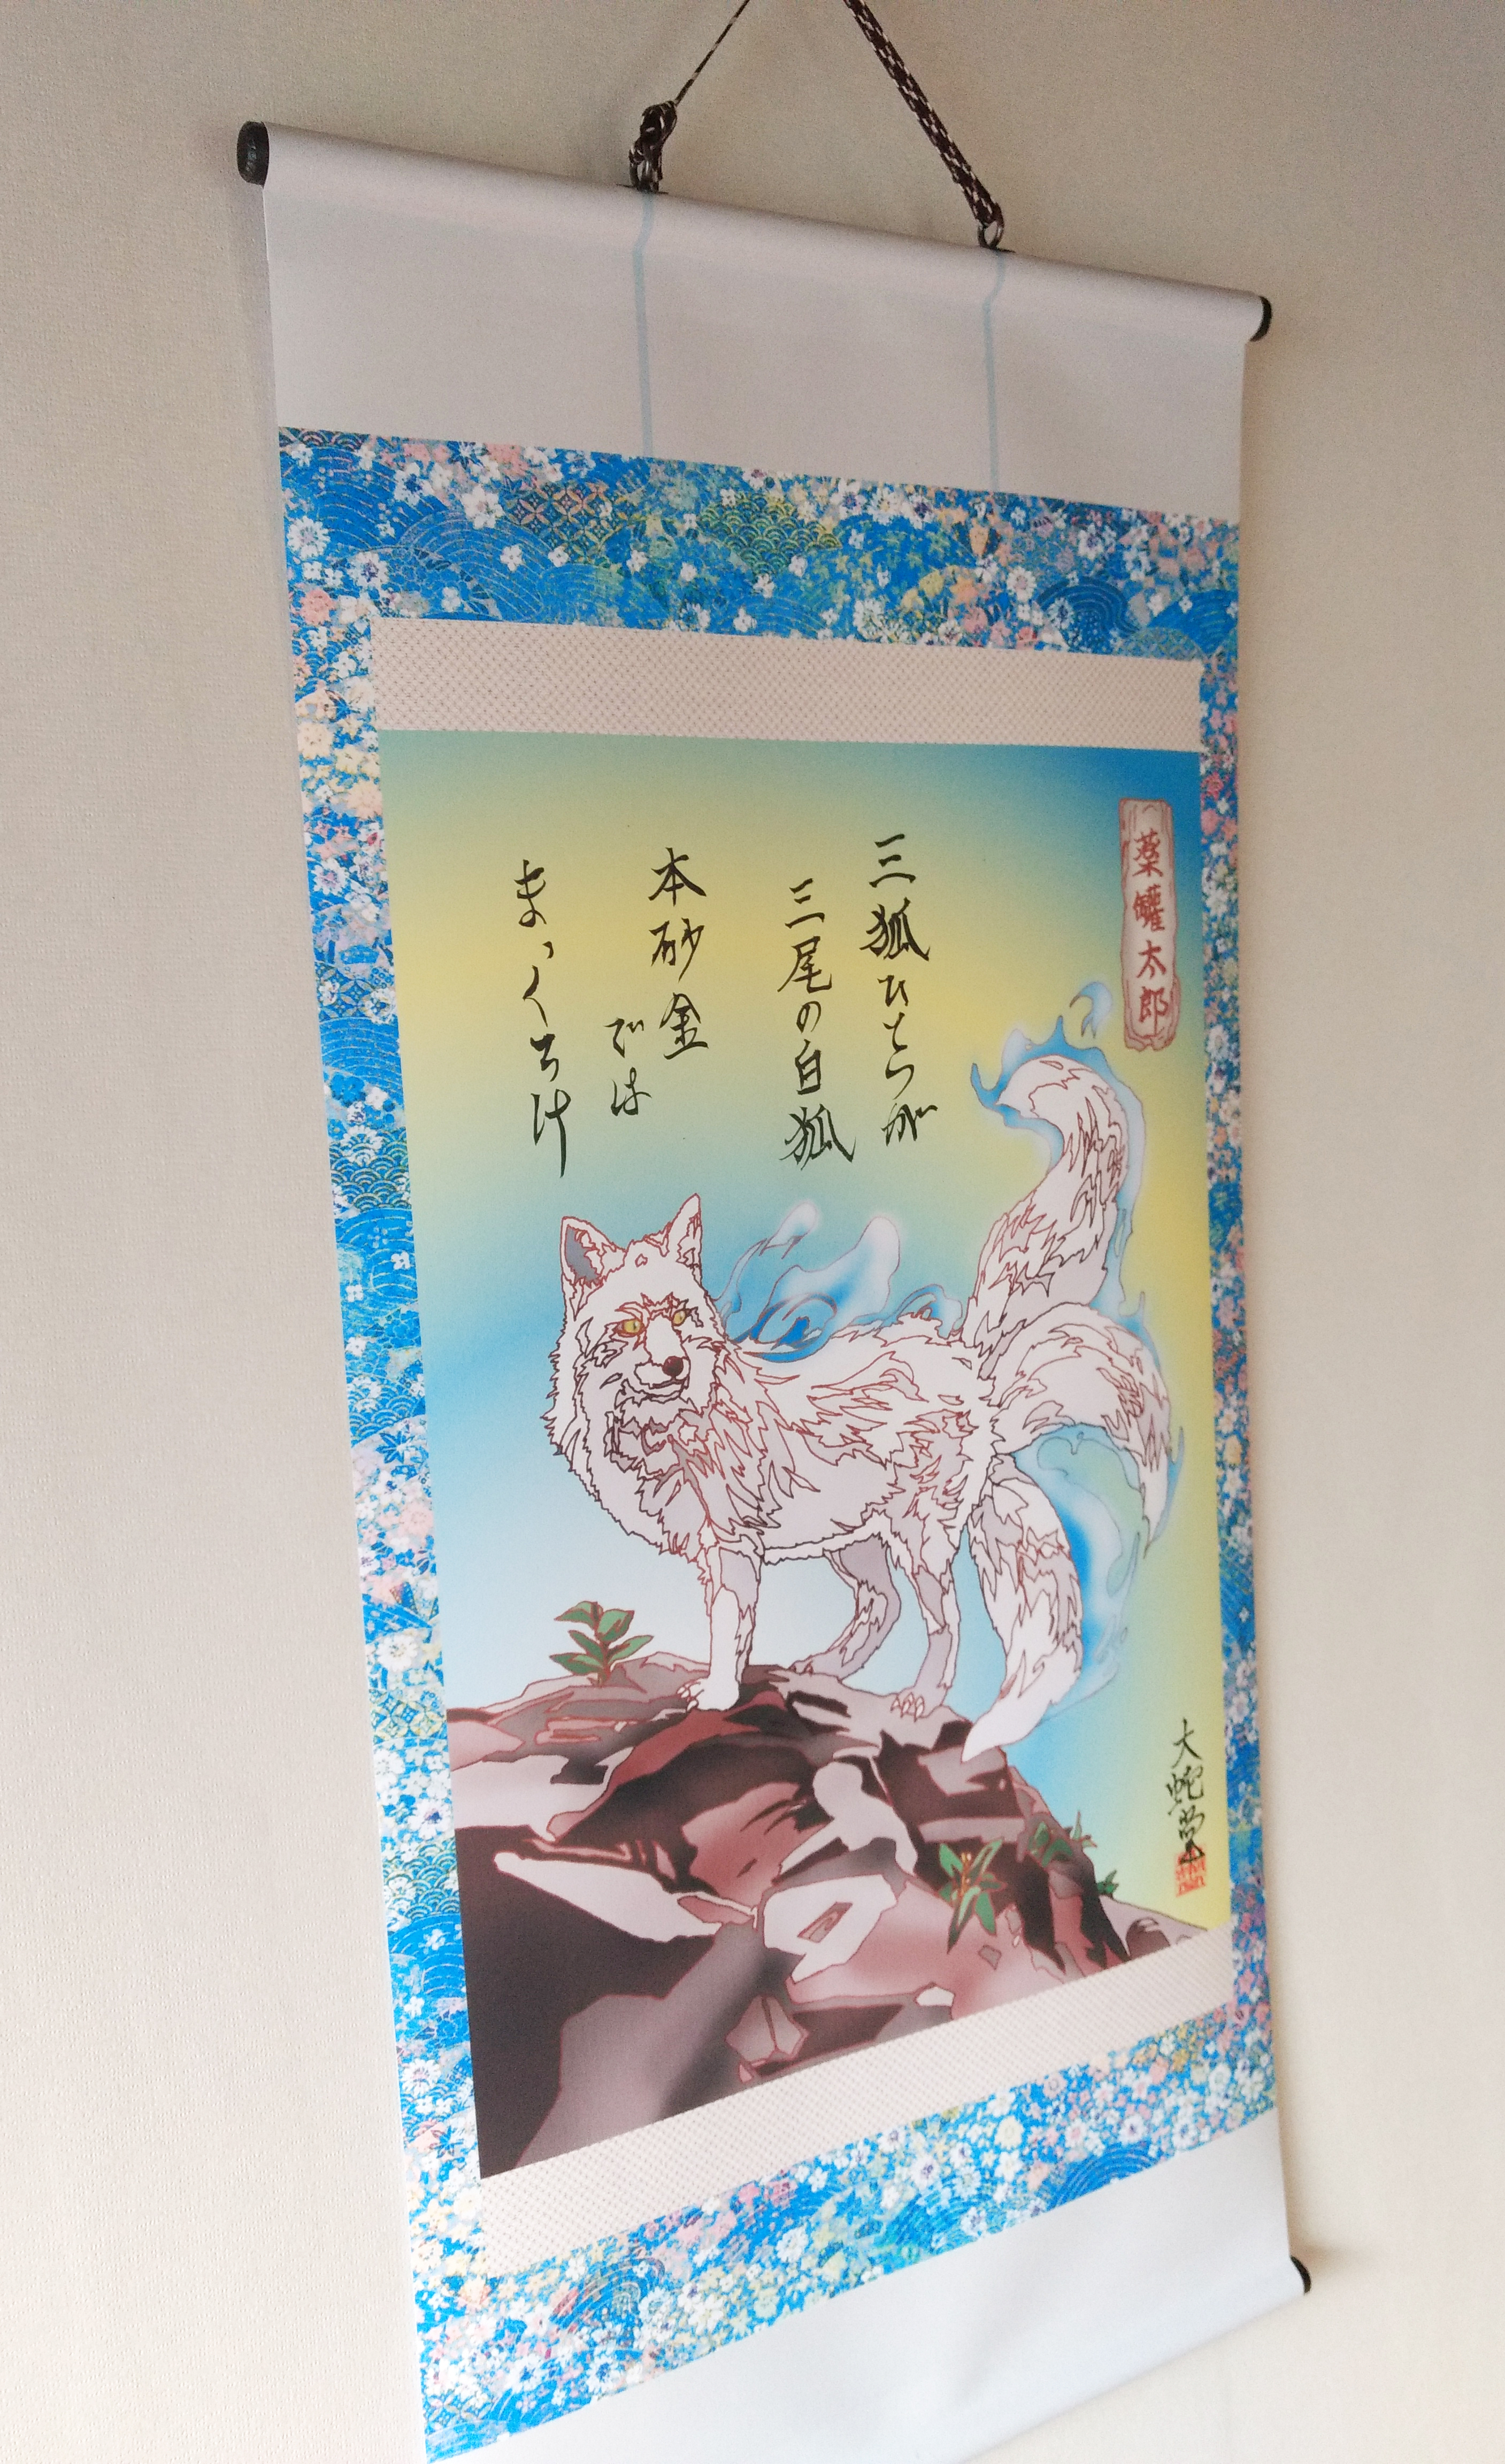 薬罐太郎
三狐ひとつが
三尾の白狐
本砂金
では
まっくろけ
大蛇堂